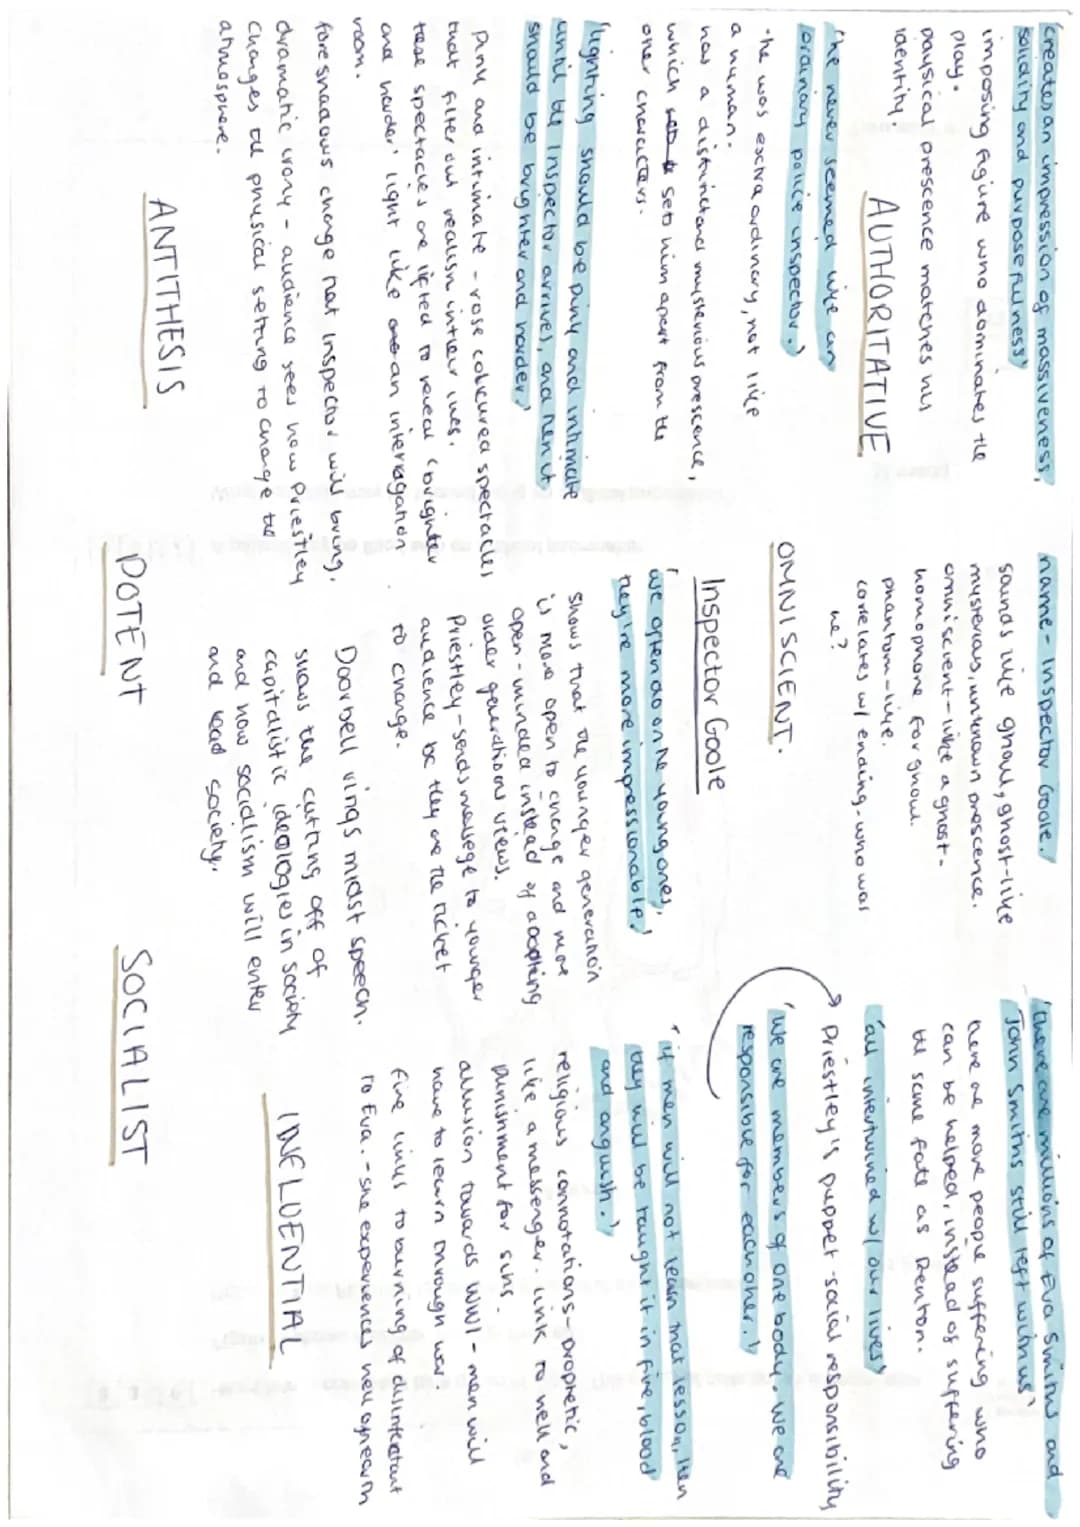 'creates an impression of massiveness,
solidity and purposefulness'
imposing figure who dominates the
play.
physical prescence matches his
identity.
AUTHORITATIVE
'he never seemed like an
ordinary police inspector.'
'he was extraordinary, not like
a human.
has a distinct and mysterious prescence,
which sets him apart from the
other characters.
'lighting should be pink and intimate
until the Inspector arrives, and then it
should be brighter and harder'
pink and intimate - rose coloured spectacles
that filter out realism in their lives.
these spectacles are lifted to reveal 'brighter
and harder' light like an interrogation
room.
foreshadows change that Inspector will bring.
dramatic irony - audience sees how Priestley
changes the physical setting to change the
atmosphere.
ANTITHESIS
name - Inspector Goole.
sounds like ghoul, ghost-like
mysterious, unknown prescence.
omniscient - like a ghost -
homophone for ghoul.
phantom-like.
correlates w/ ending - who was
he?
OMNISCIENT.
Inspector Goole
'we often do on the young ones,
they're more impressionable.'
shows that the younger generation
is more open to change and more
open-minded instead of adopting
older generations views.
Priestley - sends message to younger
audience bc they are the ticket
to change.
Doorbell rings midst speech.
shows the cutting off of
capitalistic ideologies in society
and how socialism will enter
and lead society.
POTENT
'there are millions of Eva Smiths and
John Smiths still left with us'
there are more people suffering who
can be helped, instead of suffering
the same fate as Renton.
'all intertwined w/ our lives'
Priestley's puppet - social responsibility
'We are members of one body. We are
responsible for each other.'
'if men will not learn that lesson, then
they will be taught it in fire, blood
and anguish.'
religious connotations - prophetic,
like a messenger. link to hell and
punishment for sins.
allusion towards WW1 - men will
have to learn through war
fire links to burning of disinfectant
to Eva. - she experiences hell on earth
INFLUENTIAL
SOCIALIST